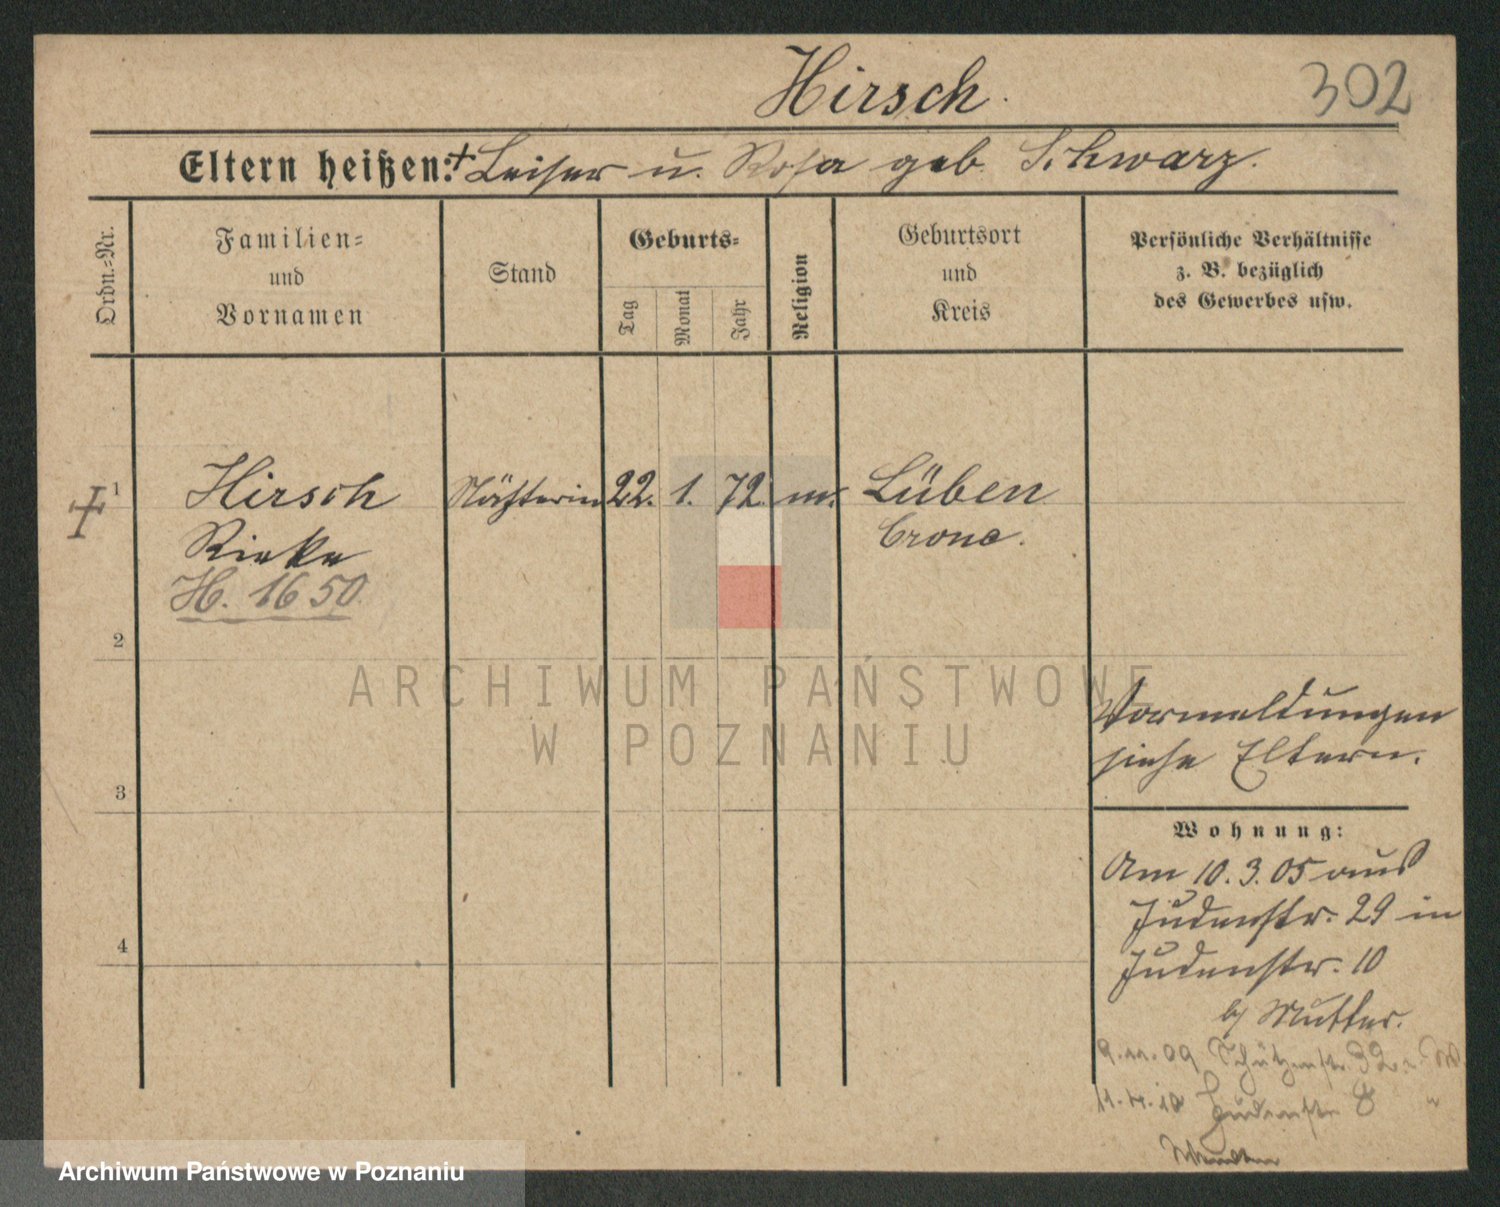 Hirsch.
302
Eltern heißen: + Leiser u. Rosa geb. Schwarz.
Ordn.-Nr.
Familien-
und
Vornamen
Stand
Geburts-
Tag
Monat
Jahr
Religion
Geburtsort
und
Kreis
Persönliche Verhältnisse
z. B. bezüglich
des Gewerbes usw.
1 Hirsch Nähterin 22. 1. 72. m. Lüben
Rieke Crone.
H. 1650
2
Vormeldungen
siehe Eltern.
3
Wohnung:
Am 10.3.05 aus
Judenstr. 29 in
Judenstr. 10
b/ Mutter.
4
9.11.09 Schützenstr. 32
11.4.10 Judenstr. 8 "
ARCHIWUM PAŃSTWOWE
W POZNANIU
Archiwum Państwowe w Poznaniu